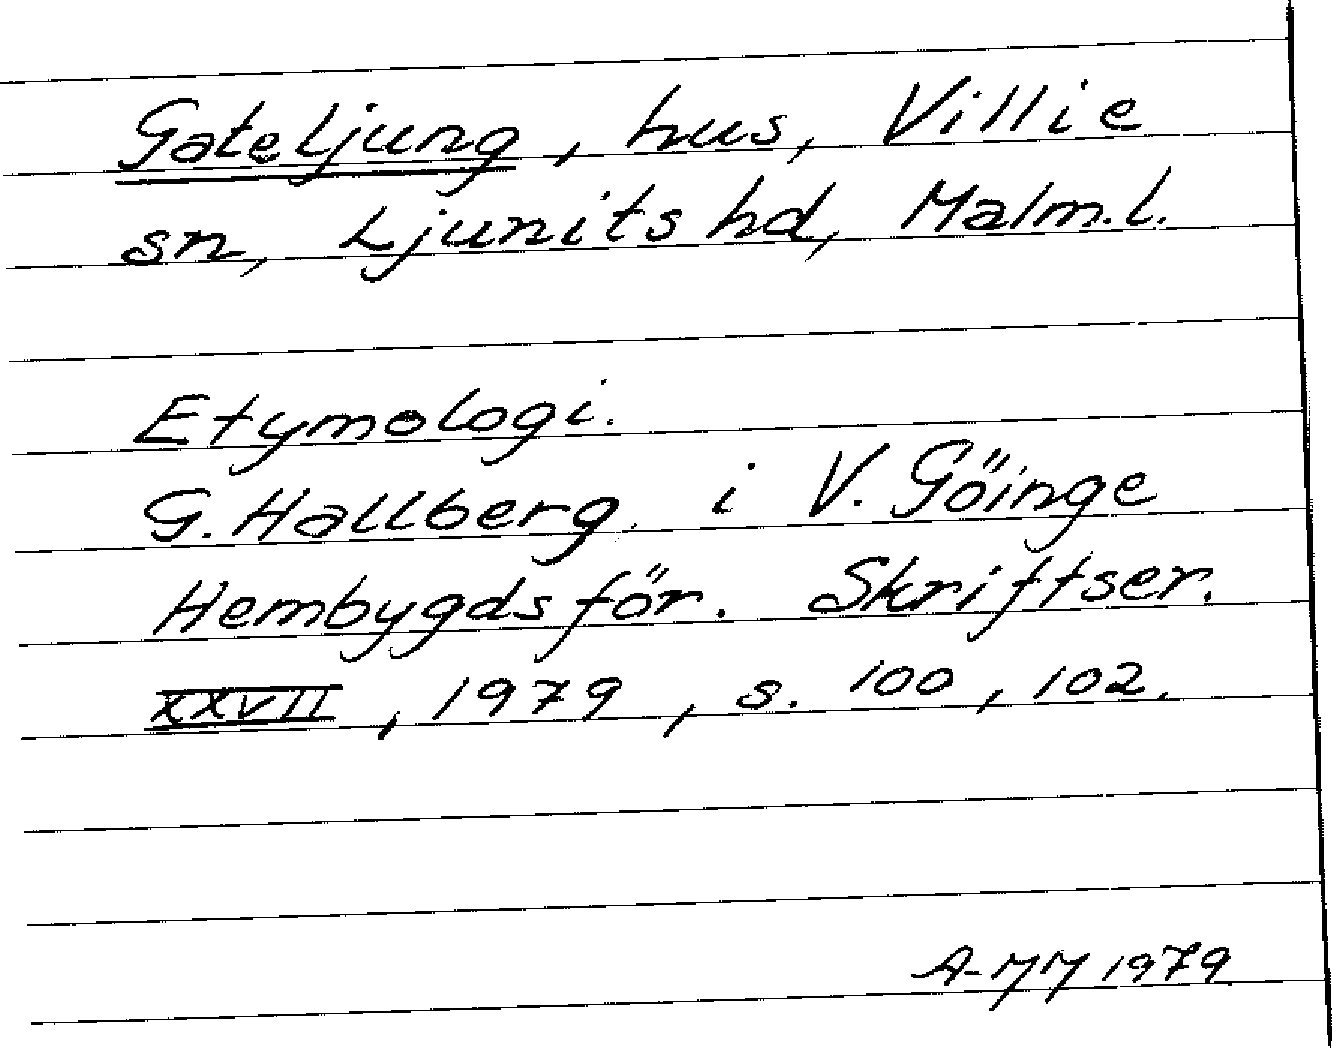 Gateljung, hus, Villie
sn, Ljunits hd, Malm.l.
Etymologi.
G. Hallberg i V. Göinge
Hembygdsför. Skriftser.
XXVII, 1979, s. 100, 102.
A-MM 1979